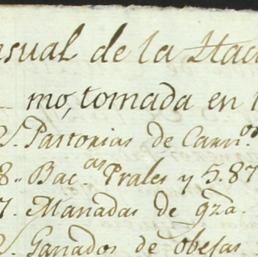 sual de la Hac
mo, tomada en
Pastorias de Carn.os
8. Bac.as Prales y 5.87
7. Manadas de gza.
Ganados de obejas